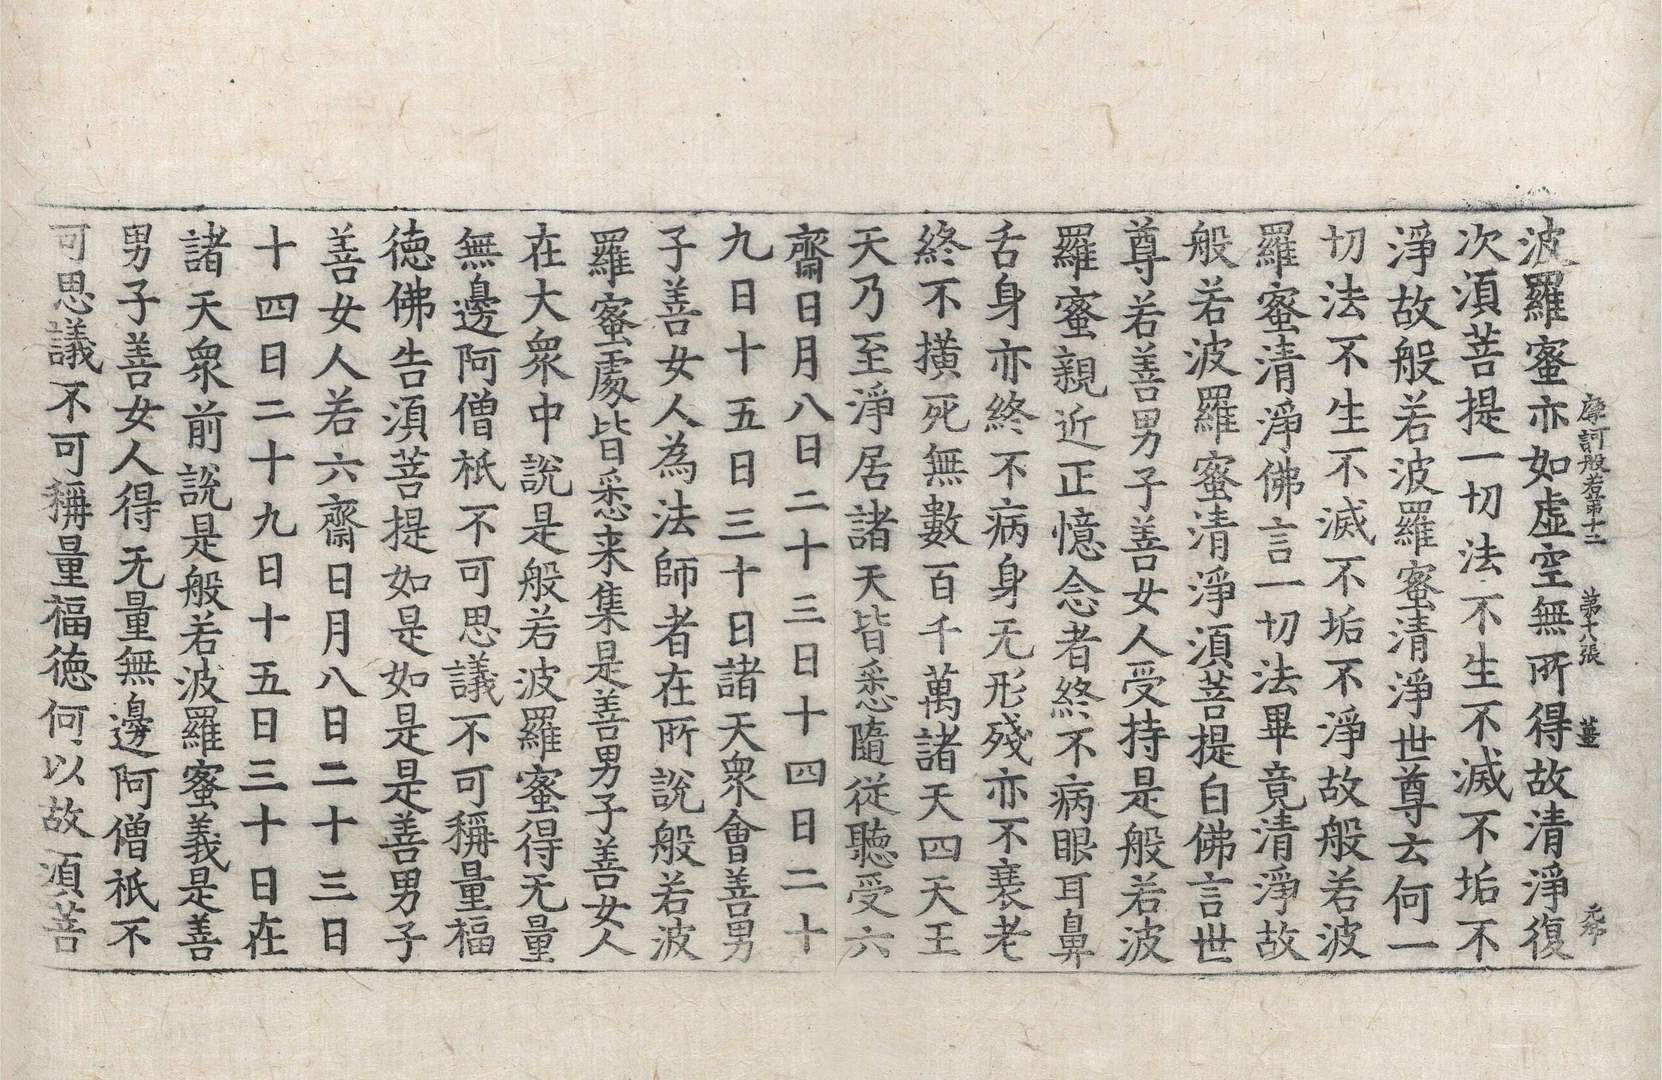 摩訶般若第十二　第十八張　薑
波羅蜜亦如虛空無所得故清淨復
次湏菩提一切法不生不滅不垢不
淨故般若波羅蜜清淨世尊云何一
切法不生不滅不垢不淨故般若波
羅蜜清淨佛言一切法畢竟清淨故
般若波羅蜜清淨湏菩提白佛言世
尊若善男子善女人受持是般若波
羅蜜親近正憶念者終不病眼耳鼻
舌身亦終不病身无形殘亦不衰老
終不橫死無數百千萬諸天四天王
天乃至淨居諸天皆悉隨從聽受六
齋日月八日二十三日十四日二十
九日十五日三十日諸天衆會善男
子善女人為法師者在所說般若波
羅蜜處皆悉来集是善男子善女人
在大衆中說是般若波羅蜜得无量
無邊阿僧祇不可思議不可稱量福
德佛告湏菩提如是如是是善男子
善女人若六齋日月八日二十三日
十四日二十九日十五日三十日在
諸天衆前說是般若波羅蜜義是善
男子善女人得无量無邊阿僧祇不
可思議不可稱量福德何以故湏菩